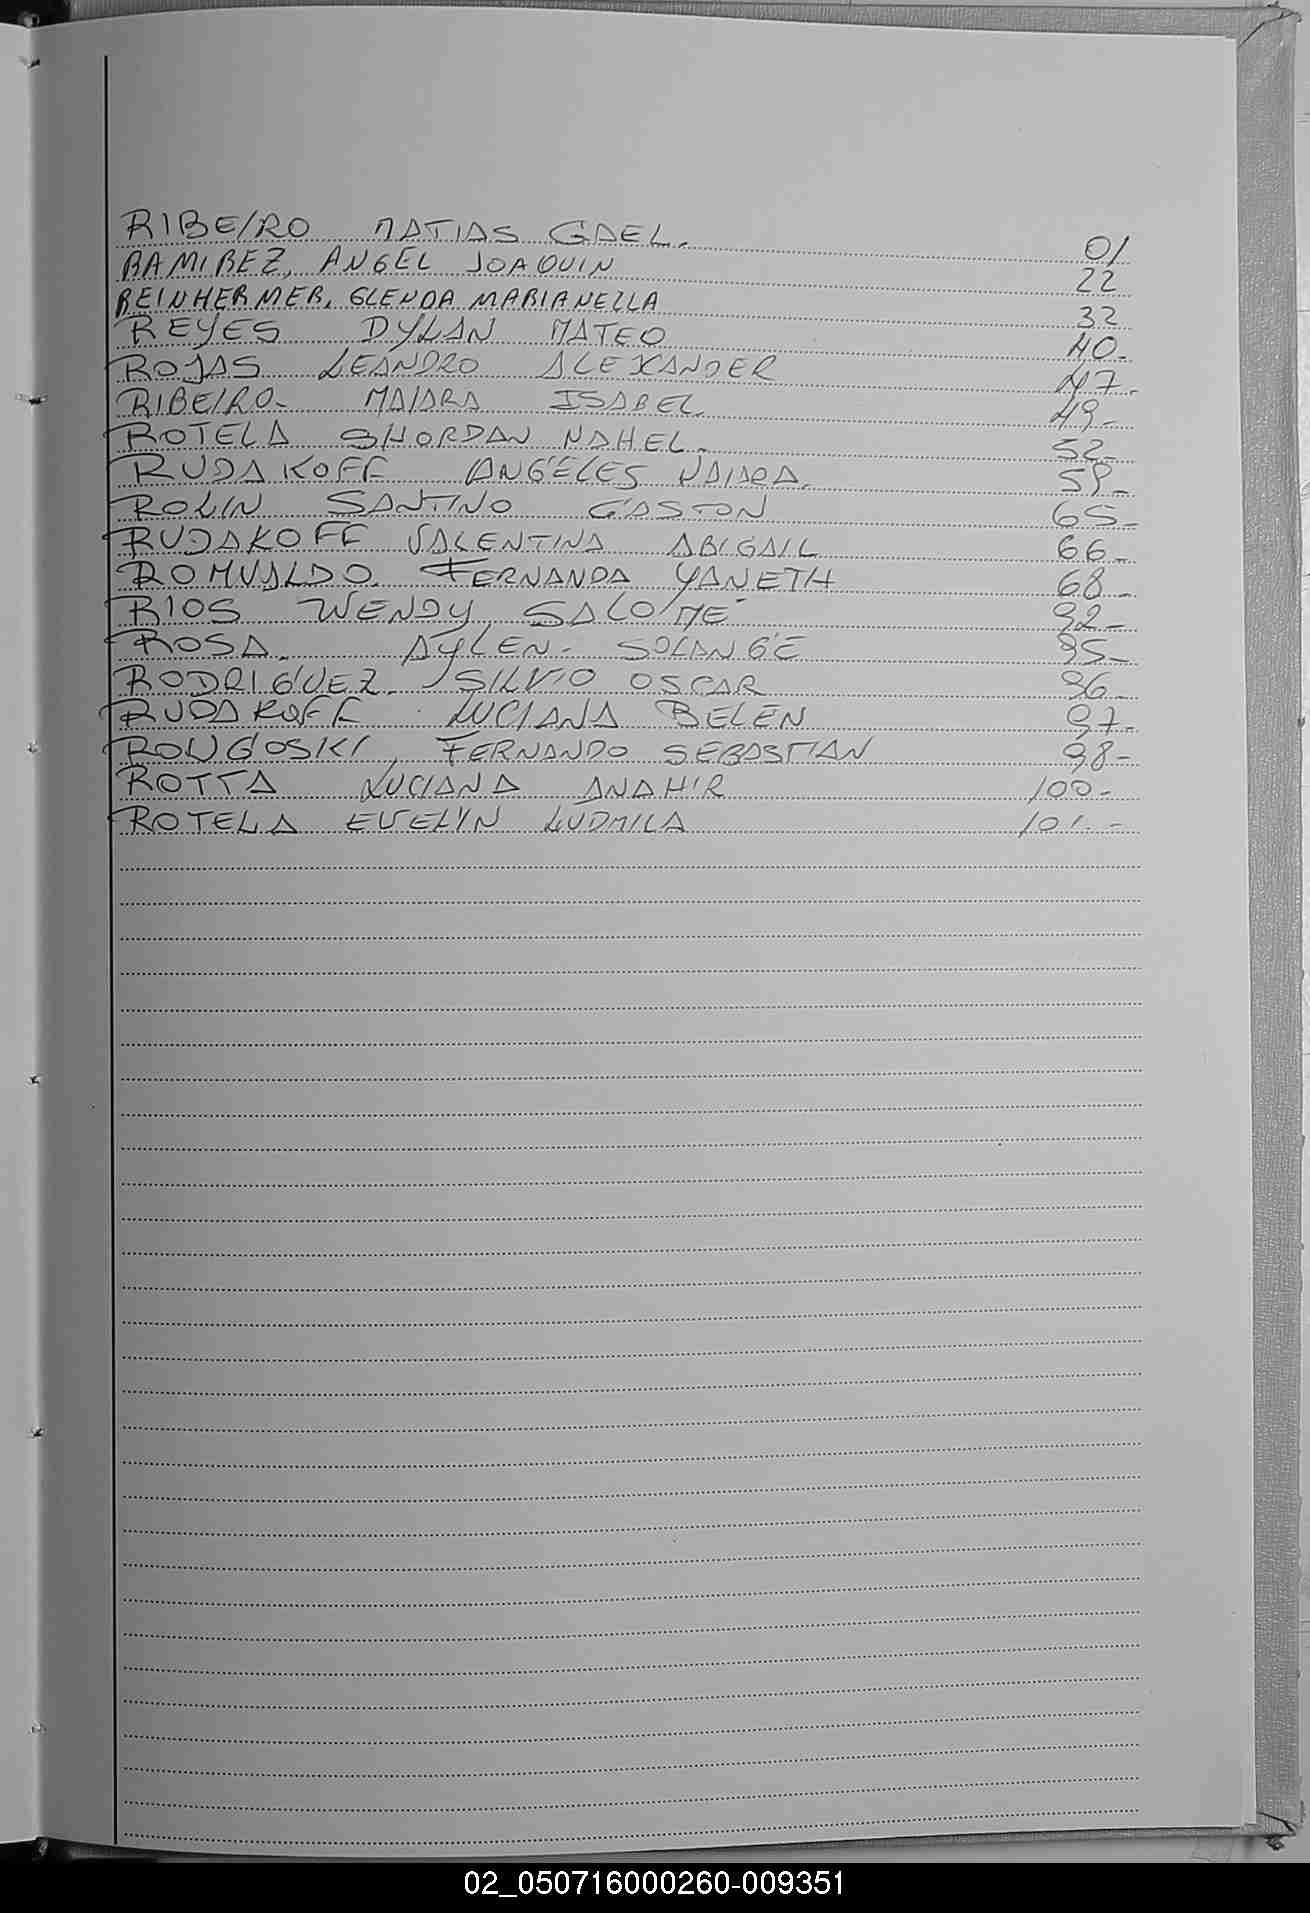 RIBEIRO MATIAS GAEL. 01
RAMIREZ, ANGEL JOAQUIN 22
REINHERMER, GLENDA MARIANELLA 32
REYES DYLAN MATEO 40-
ROJAS LEANDRO ALEXANDER 47-
RIBEIRO- MAIARA ISABEL. 49-
ROTELA SHORDAN NAHEL. 52-
RUDAKOFF ANGELES NAIARA. 59-
ROLIN SANTINO GASTON 65-
RUDAKOFF VALENTINA ABIGAIL 66-
ROMUALDO. FERNANDA YANETH 68-
RIOS WENDY SALOMÉ 92-
ROSA. AYLEN- SOLANGE 95-
RODRIGUEZ. SILVIO OSCAR 96-
RUDAKOFF LUCIANA BELÉN 97-
ROUGOSKI, FERNANDO SEBASTIAN 98-
ROTTA LUCIANA ANAHIR 100-
ROTELA EVELYN LUDMILA 101.-
02_050716000260-009351